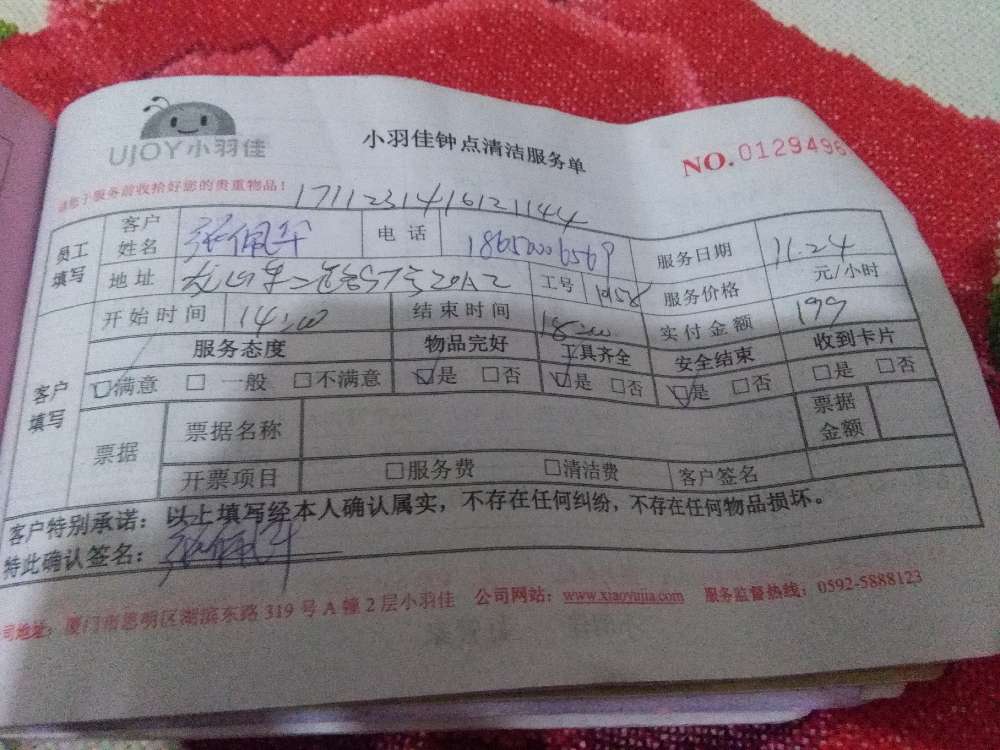 UJOY小羽佳
小羽佳钟点清洁服务单
NO.0129496
请您于服务前收拾好您的贵重物品!
1711231416121144
员工填写 客户姓名 张佩军 电话 18650006569 服务日期 11.24
地址 工号 服务价格 元/小时
开始时间 14:00 结束时间 18:00 实付金额 199
客户填写 服务态度 物品完好 工具齐全 安全结束 收到卡片
☑满意 □一般 □不满意 ☑是 □否 ☑是 □否 ☑是 □否 □是 □否
票据 票据名称 票据金额
开票项目 □服务费 □清洁费 客户签名
客户特别承诺:以上填写经本人确认属实,不存在任何纠纷,不存在任何物品损坏。
特此确认签名:张佩军
公司地址:厦门市思明区湖滨东路319号A幢2层小羽佳 公司网站:www.xiaoyujia.com 服务监督热线:0592-5888123